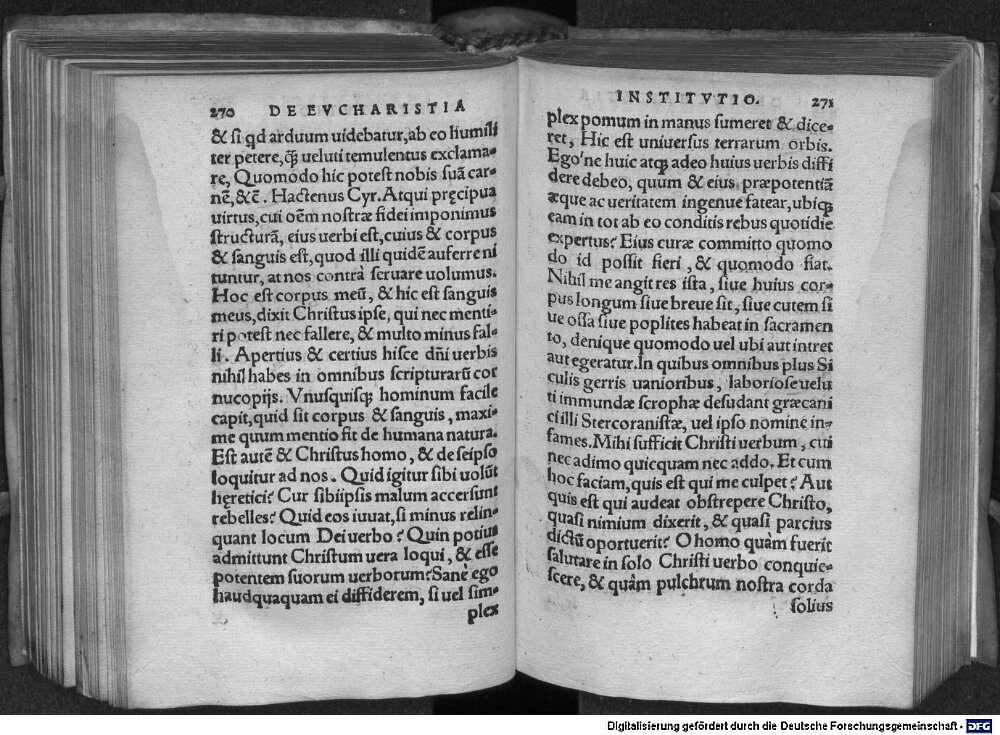 270 DE EVCHARISTIA
& si qd arduum uidebatur, ab eo humili
ter petere, q̃ʒ ueluti temulentus exclama-
re, Quomodo hic potest nobis suã car-
nẽ, &c̃. Hactenus Cyr. Atqui pręcipua
uirtus, cui oẽm nostræ fidei imponimus
structurã, eius uerbi est, cuius & corpus
& sanguis est, quod illi quidẽ auferre ni
tuntur, at nos contrà seruare uolumus.
Hoc est corpus meũ, & hic est sanguis
meus, dixit Christus ipse, qui nec menti-
ri potest nec fallere, & multo minus fal-
li. Apertius & certius hisce dñi uerbis
nihil habes in omnibus scripturarũ cor
nucopijs. Vnusquisqʒ hominum facile
capit, quid sit corpus & sanguis, maxi-
me quum mentio fit de humana natura.
Est autẽ & Christus homo, & de seipso
loquitur ad nos. Quid igitur sibi uolũt
hęretici? Cur sibiipsis malum accersunt
rebelles? Quid eos iuuat, si minus relin-
quant locum Dei uerbo? Quin potius
admittunt Christum uera loqui, & esse
potentem suorum uerborum? Sanè ego
haudquaquam ei diffiderem, si uel sim-
plex
INSTITVTIO. 271
plex pomum in manus sumeret & dice-
ret, Hic est uniuersus terrarum orbis.
Ego'ne huic atqʒ adeo huius uerbis diffi
dere debeo, quum & eius præpotentiã
æque ac ueritatem ingenue fatear, ubiqʒ
eam in tot ab eo conditis rebus quotidie
expertus? Eius curæ committo quomo
do id possit fieri, & quomodo fiat.
Nihil me angit res ista, siue huius cor-
pus longum siue breue sit, siue cutem si
ue ossa siue poplites habeat in sacramen
to, denique quomodo uel ubi aut intret
aut egeratur. In quibus omnibus plus Si
culis gerris uanioribus, laboriose uelu
ti immundæ scrophæ desudant græcani
ci illi Stercoranistæ, uel ipso nomine in-
fames. Mihi sufficit Christi uerbum, cui
nec adimo quicquam nec addo. Et cum
hoc faciam, quis est qui me culpet? Aut
quis est qui audeat obstrepere Christo,
quasi nimium dixerit, & quasi parcius
dictũ oportuerit? O homo quàm fuerit
salutare in solo Christi uerbo conquie-
scere, & quàm pulchrum nostra corda
solius
Digitalisierung gefördert durch die Deutsche Forschungsgemeinschaft - DFG